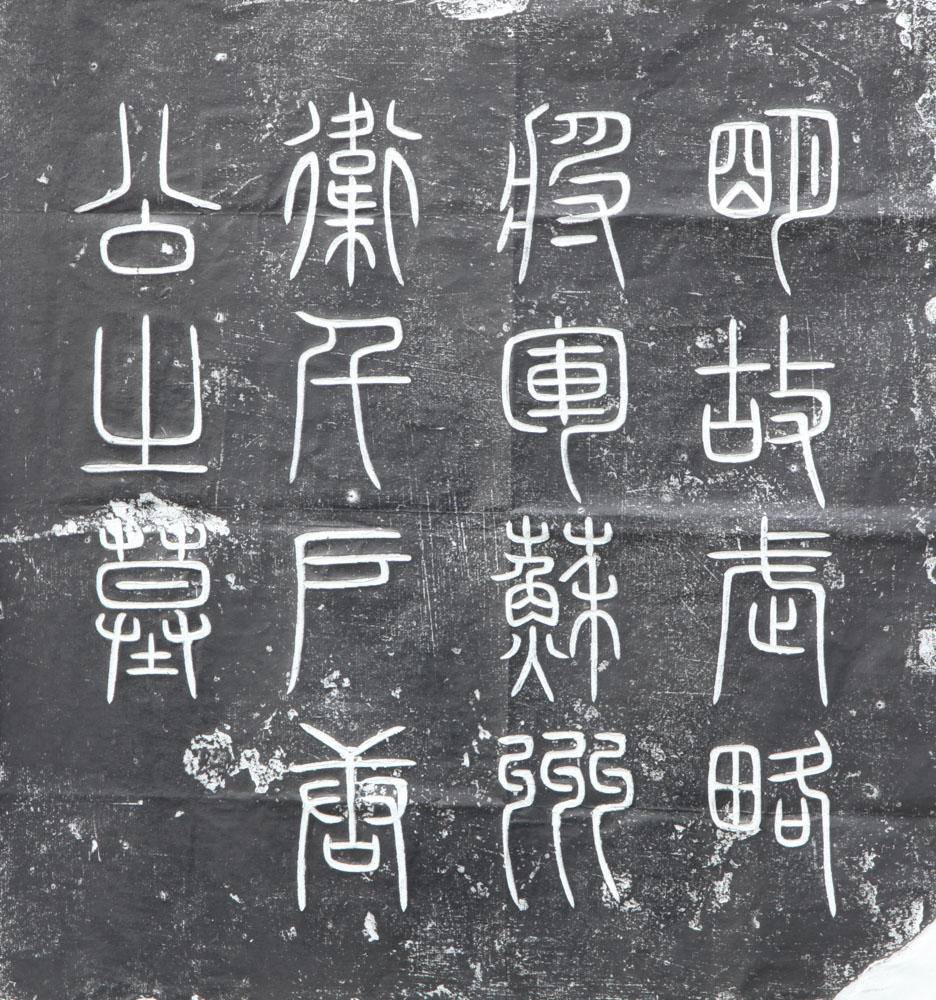 明故武略
將軍蘇州
衛千戶唐
公之墓